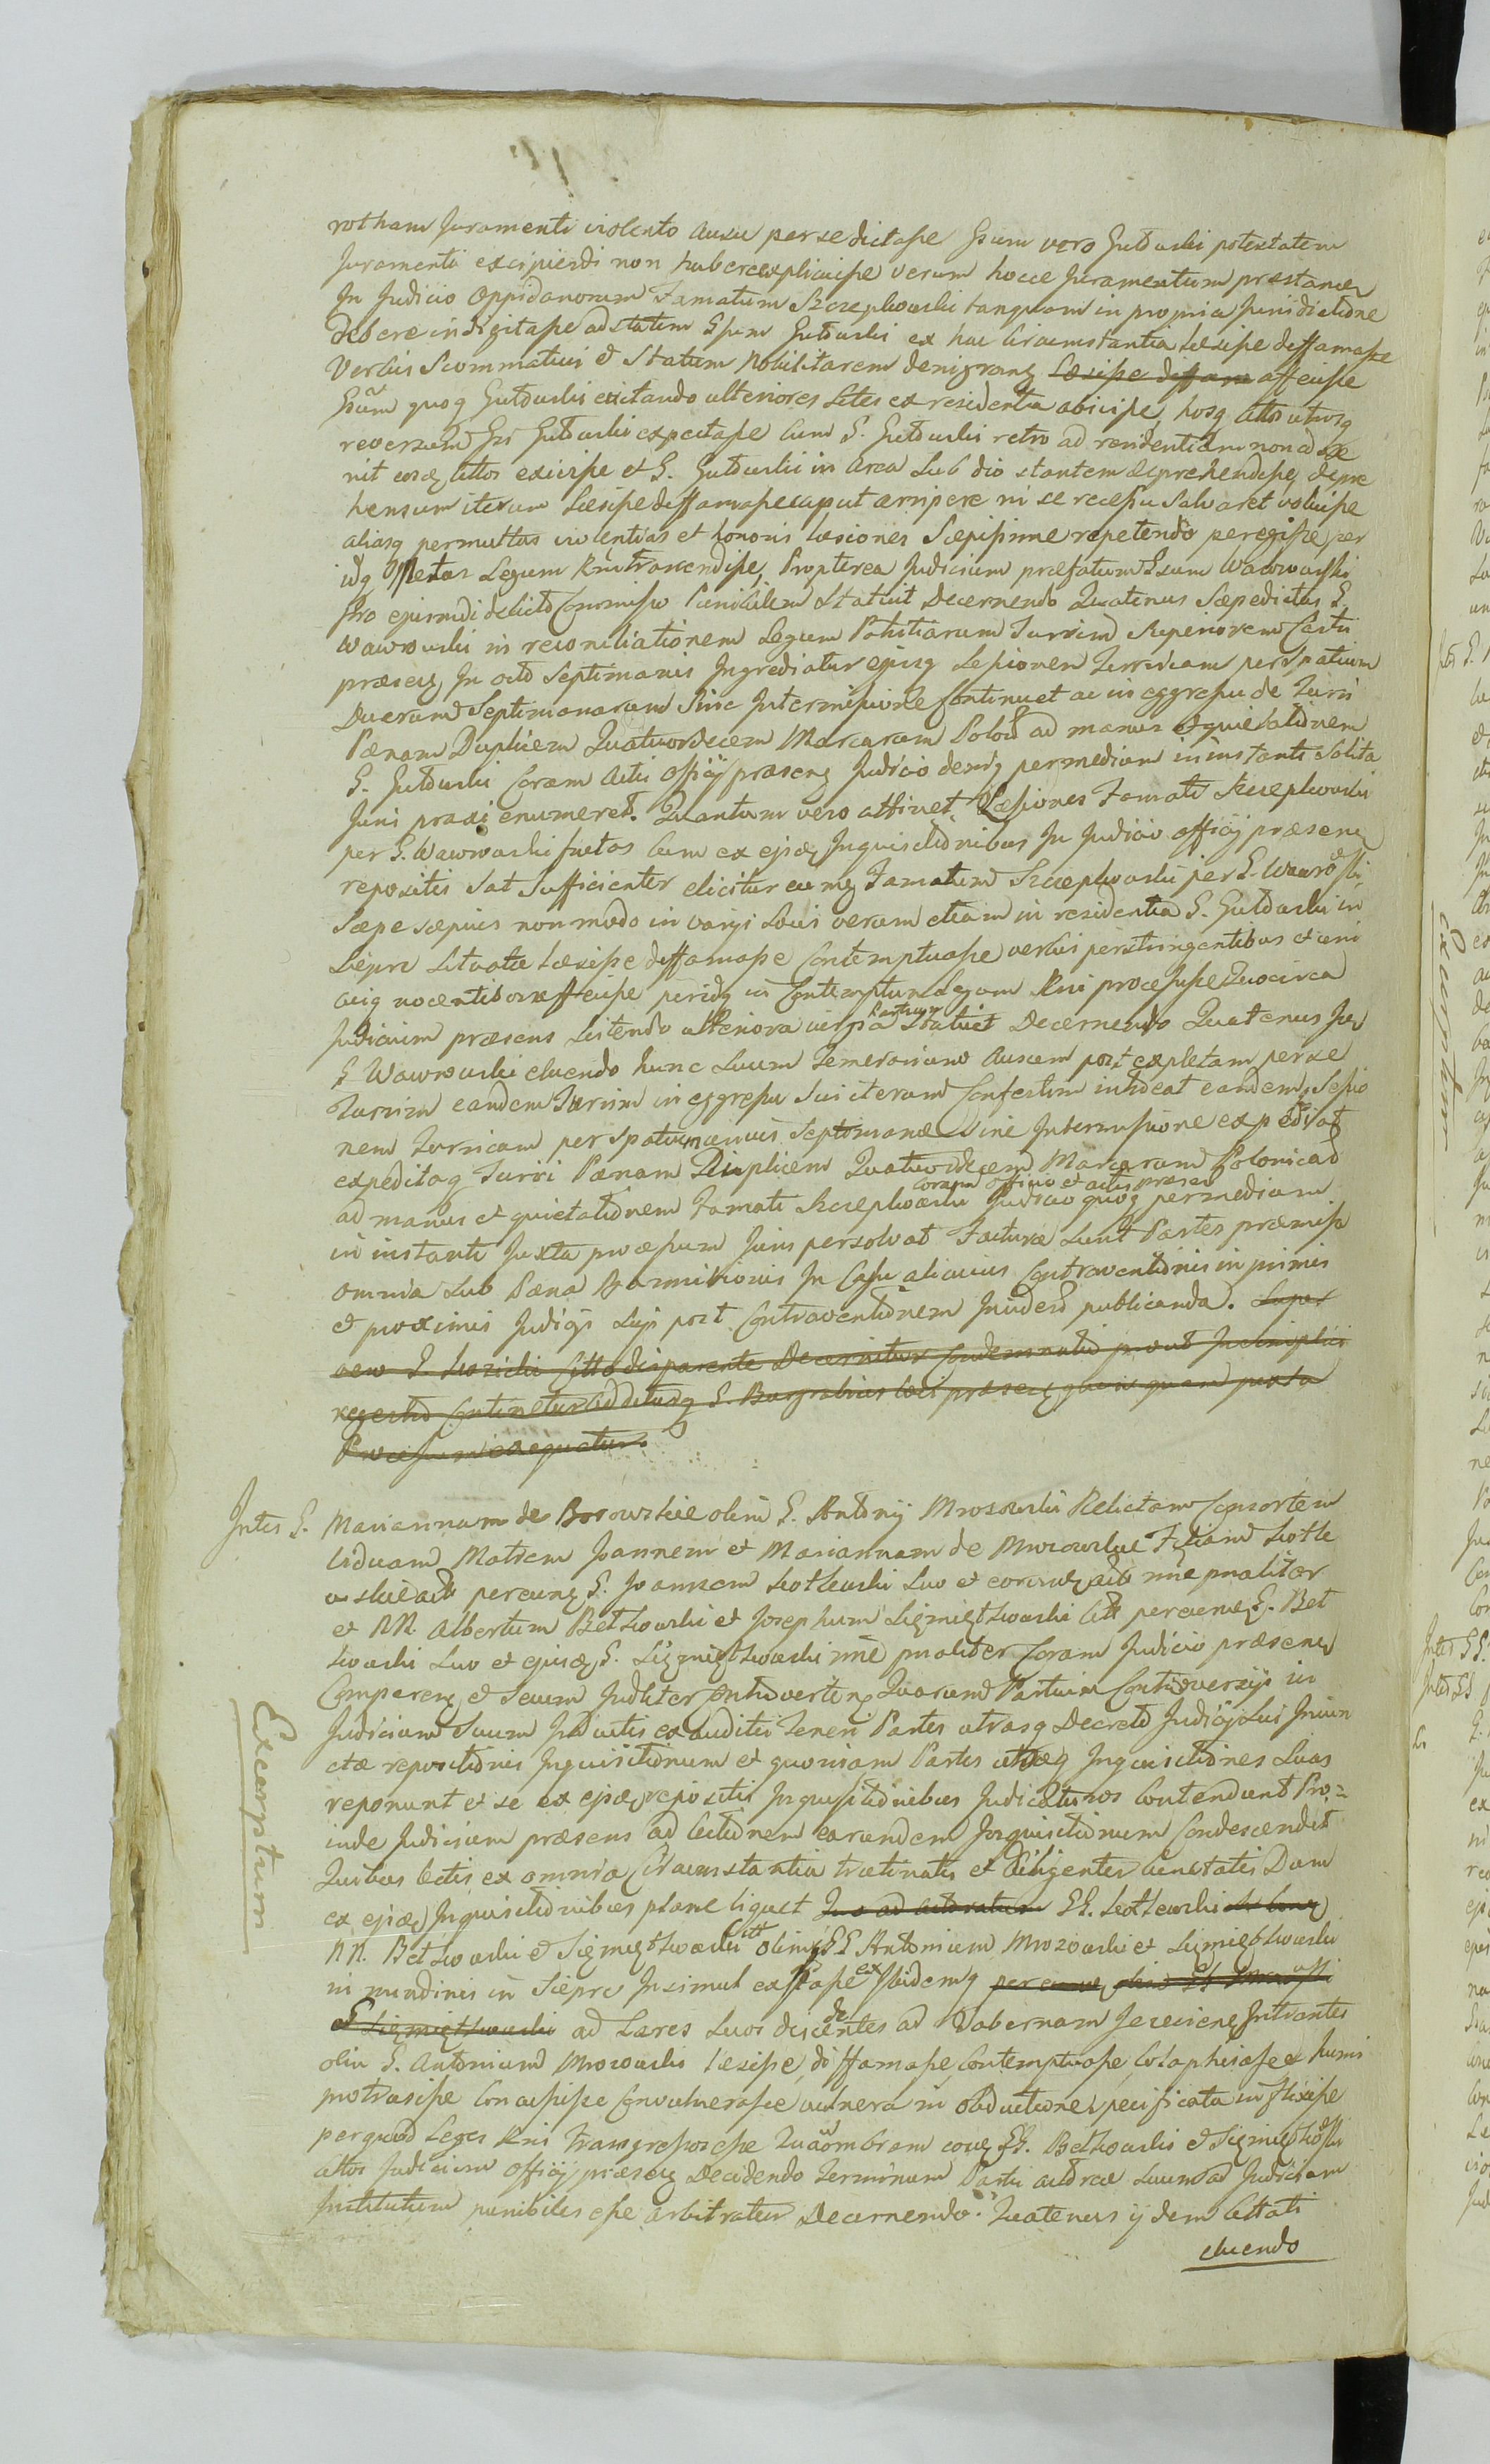 rotham Juramenti violento ausu per se dictasse Gsum vero Gutowski potestatem
Juramenti excipiendi non habere explicuisse verum hocce Juramentum præstare
In Judicio Oppidanorum Famatum Szczepkowski tanquam in propria Jurisdictione
debere indigitasse ad statum Gsum Gutowski ex hac Circumstantia læsisse deffamasse
Verbis Scommaticis et Statum Nobilitarem denigrang Læsisse diffam affecisse
Gsum quoq Gutowski evitando ulteriores Lites ex residentia abivisse, hosq Cttos utrosq
reversum Gsi Gutowski expectasse Cum G. Gutowski retro ad residentiam non adve
nit eosq Cttos exivisse et G. Gutowski in Area Sub dio stantem deprehendisse, depre
hensum iterum Læsisse deffamasse caput arripere ni se recessu salvaret voluisse
aliasq permultas violentias et honoris læsiones Sæpissime repetendo peregisse, per
idq Metas Legum Rni transcendisse, Propterea Judicium præfatum Gsum Wawrowski
Pro ejusmodi delicto Commisso Punibilem Statuit Decernendo Quatenus Sæpedictus G.
Wawrowski in reconciliationem Legum Polsitiarum Turrim Superiorem Castri
præsen In octo Septimanis Ingrediatur ejusq Sessionem Turricam per Spatium
Duarum Septimanarum Sine Intermissione Continuet ac in eggressu de Turri
Pænam Duplicem Quatuordecem Marcarum Polod ad manus et quietationem
G. Gutowski Coram Actis Officij præsen Judicio denq permedium in instanti Solita
Juri praxi enumeret. Quantum vero attinet Læsiones Famati Szczepkowski
per G. Wawrowski factas Cum ex ejsd Inquisitionibus In Judicio officij præsen
repositis Sat Sufficienter elicitur eumq Famatum Szczepkowski per G. Wawrowski
Sæpe sæpius non modo in varijs Locis verum etiam in residentia G. Gutowski in
Siepre Situata Læsisse deffamasse Contemptuasse verbis perstringentibus et uni
cuiq nocentibus affecisse peridq in Contemptum Legum Rni processisse Quocirca
Judicium præsens Sistendo ulteriora jurgia Partium Statuit Decernendo Quatenus Jpe
G. Wawrowski eluendo hunc Suum Temerarium Ausum post expletam per se
Turrim eandem Turrim in eggressu Sui iterum Confestim introeat eandemq Sessio
nem Turricam per spatium unius Septimanæ Sine Intermissione expediat
expeditaq Turri Pænam Duplicem Quatuordecem Marcarum Polonicad
ad manus et quietationem Famati Szczepkowski Coram Officio et actis præsen Judicio quoq permedium
in instanti Juxta processum Juris persolvat Facturæ sunt Partes præmissa
omnia Sub Pæna Bannitionis In Casu alicuius Contraventionis in primis
et proximis Judicijs Sujs post Contraventionem Inciderd publicanda. Super
vero G. Citto disparente Decernitur Condemnatio prout In Simplici
regestro Continetur Additurq G. Burgrabius Loci præsen juxta
Processum exequatur.
Inter G. Mariannam de Borowskie olim G. Antonij Mrozowski Relictam Consortem
Viduam Matrem Joannem et Mariannam de Mrozowskie Filiam Kotle
wskie actt per eung G. Joannem Kotlewski Suo et eorund actt nne pnaliter
et NN. Albertum Betkowski et Josephum Sigmuntkowski Citt per eund G. Bet
kowski Suo et ejusd G. Sigmuntkowski nne pnaliter Coram Judicio præsen
Comparen et Secum Judliter Controverten Quarum Partium Controversijs in
Judicium Suum Inductis exauditis Teneri Partes utrasq Decreto Judicij Sui Iniun
ctæ repositionis Inquisitionum et quoniam Partes utræq Inquisitiones Suas
reponunt et se ex ejsd repositis Inquisitionibus Judicaturos Contendunt Pro=
inde Judicium præsens ad Lectionem earundem Inquisitionum Condescendit
Quibus Lectis ex omnia Circumstantia trutinatis et diligenter Ventatis Dum
ex ejsd Inquisitionibus plane liquet Quo ad actoratum GG. Kotlewski
NN. Betkowski et Sigmuntkowski Citt olim GG Antonium Mrozowski et Sigmuntkowski
in nundinis in Siepre Insimul exstasse ex Ibidemq
et Sigmuntkowski ad Lares Suos descendentes ad Tabernam Intrantes
olim G. Antonium Mrozowski læsisse, diffamasse, Contemptuasse, Colaphisasse humi
protraxisse Concussisse Convulnerasse vulnera in obductione specificata inflixisse
per quod Leges Rni transgressos esse Quam ob rem eosd GG. Betkowski et Sigmuntkowski
cttos Judicium Officij præsen Decidendo Terminum Parti actoreæ Suum ad Judicium
Institutum punibiles esse arbitratur Decernendo. Quatenus ijdem Cittati
eluendo
Excerptum